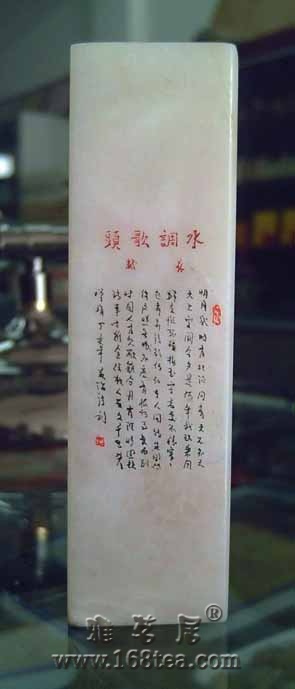 水調歌頭
蘇軾
明月幾時有把酒問青天不知天
上宮闕今夕是何年我欲乘風
歸去惟恐瓊樓玉宇高處不勝寒
起舞弄清影何似在人間轉朱閣低
綺戶照無眠不應有恨何事長向別
時圓人有悲歡離合月有陰晴圓缺
此事古難全但願人長久千里共
嬋娟 丁亥年
雅茗居®
www.168tea.com